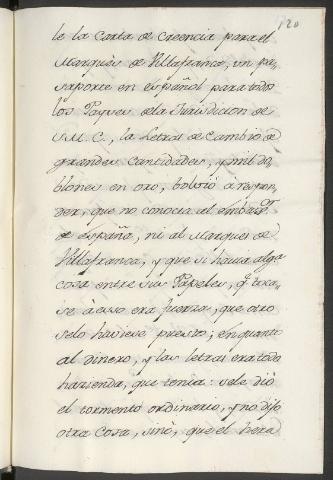 120
le la Carta de Creencia para el
Marques de Villafranca, un pa-
saporte en español para todo
los Payses dela Jurisdicion de
S.M.C., la Letras de Cambio de
grandes Cantidades, y mil do-
blones en oro, bolvió à respon-
der, que no conocia al Embax.r
de España, ni al Marques de
Villafranca, y que si havia alga
cosa entre sus Papeles, q.e toca-
se à esso era fuerza, que otro
selo huviese puesto; en quanto
al dinero, y las letras era todo
hazienda, que tenia. sele dió
el tormento ordinario, y no dijo
otra cosa, sinò, que el hera